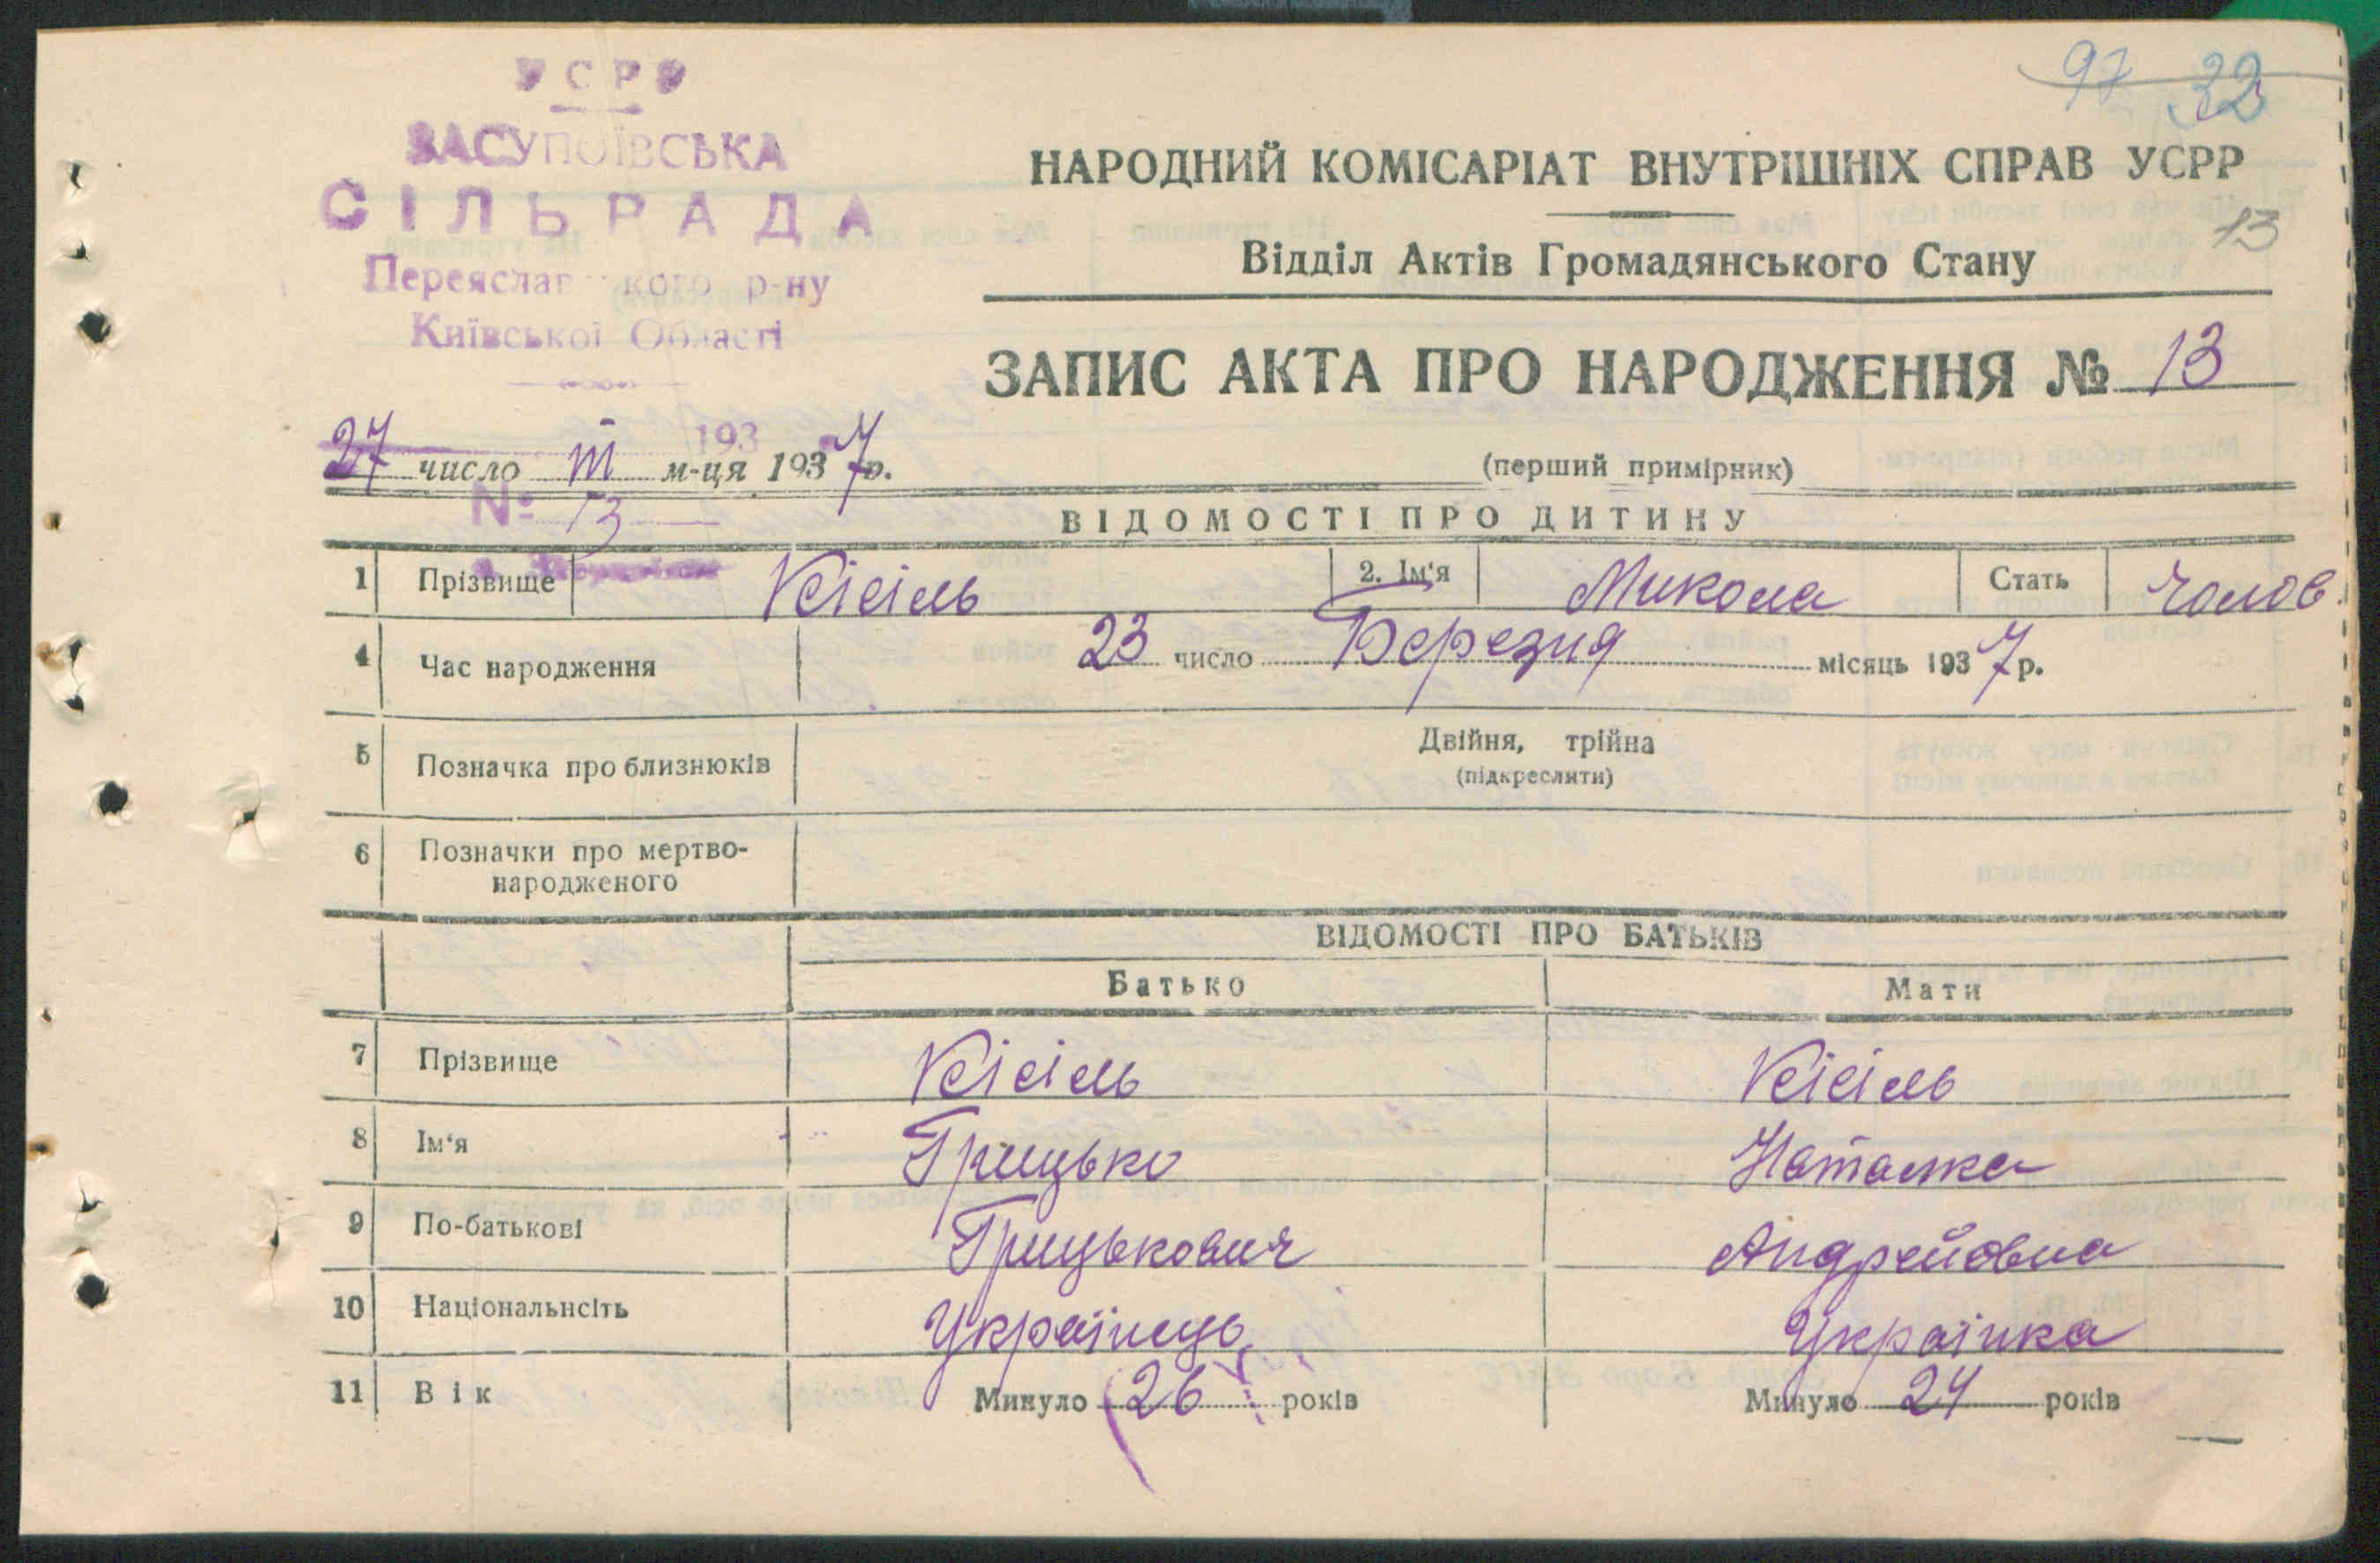 97 32
УСРР
ЗАСУПОЇВСЬКА
СІЛЬРАДА
Переяслав кого р-ну
Київської Області
193
№ 13
НАРОДНИЙ КОМІСАРІАТ ВНУТРІШНІХ СПРАВ УСРР
13
Відділ Актів Громадянського Стану
ЗАПИС АКТА ПРО НАРОДЖЕННЯ № 13
27 число III м-ця 1937р.
(перший примірник)
ВІДОМОСТІ ПРО ДИТИНУ
1 Прізвище Кісіль 2. Ім'я Микола Стать Чолов.
4 Час народження 23 число Березня місяць 1937р.
5 Позначка про близнюків Двійня, трійна
(підкреслити)
6 Позначки про мертво-
народженого
ВІДОМОСТІ ПРО БАТЬКІВ
Батько Мати
7 Прізвище Кісіль Кісіль
8 Ім'я Грицько Наталка
9 По-батькові Грицькович Андрейовна
10 Національнсіть Українець Українка
11 Вік Минуло 26 років Минуло 24 років